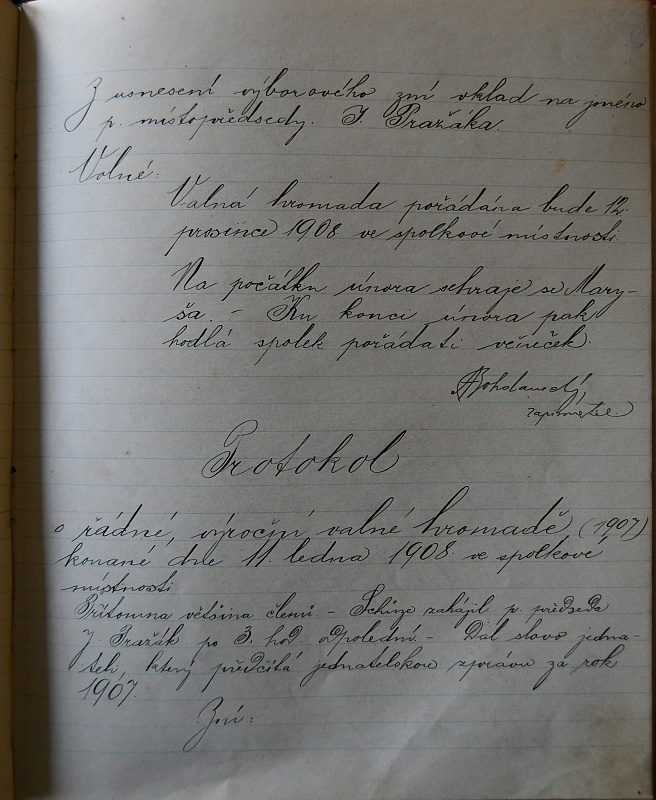 Z usnesení výborového zní vklad na jméno
p. místopředsedy. J. Pražáka.
Volné:
Valná hromada pořádána bude 12.
prosince 1908. ve spolkové místnosti.
Na počátku února sehraje se Mary-
ša. - Ku konci února pak
hodlá spolek pořádati věneček.
Bohdanecký
zapisovatel
Protokol
o řádné, výroční valné hromadě (1907)
konané dne 11. ledna 1908. ve spolkové
místnosti
Přítomna většina členů. - Schůze zahájil p. předseda
J. Pražák po 3. hod. odpolední. - Dál slovo jedna-
teli, který předčítá jednatelskou zprávu za rok
1907.
Zní: